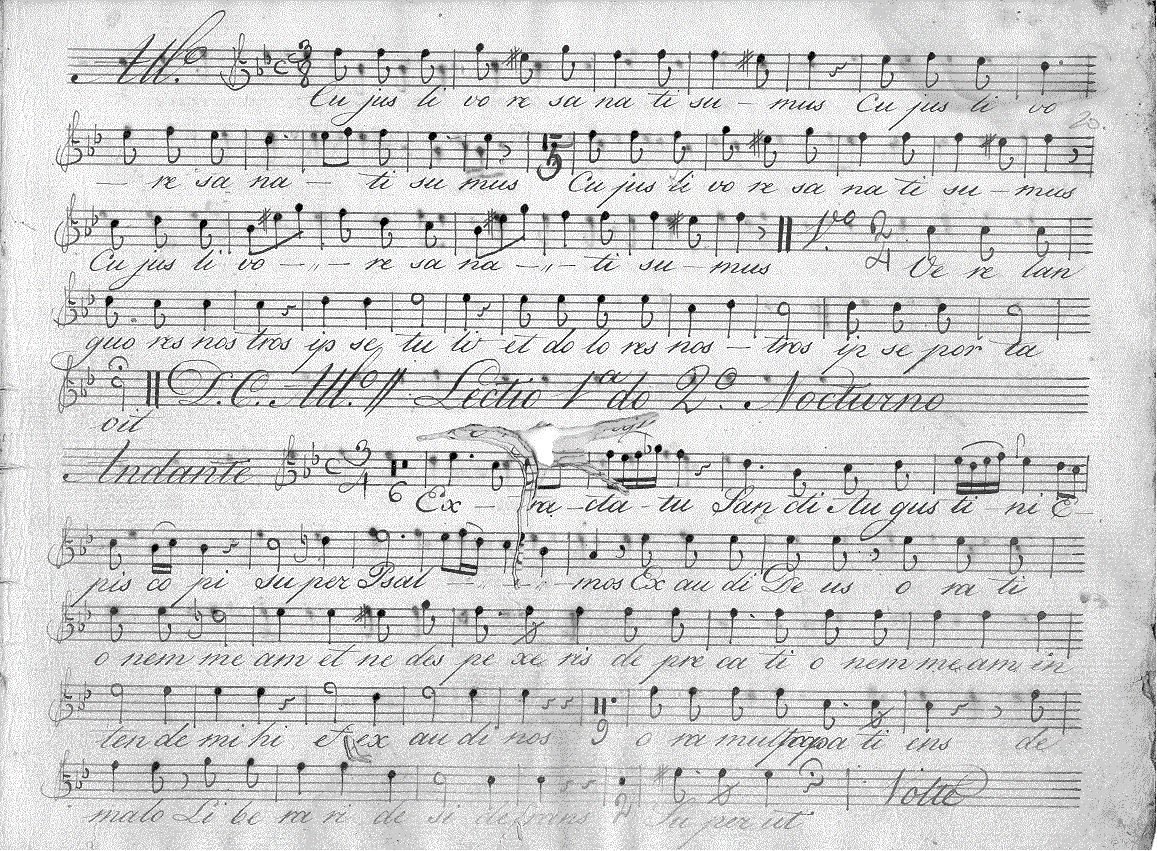 All.º C 3 8
Cu jus li vo re sa na ti su - mus Cu jus li vo
20
- re sa na - ti su mus Cu jus li vo re sa na ti su - mus
15
Cu jus li vo - " - re sa na - " - ti su - mus Ve re lan
V.º 2 4
guo res nos tros ip se tu li et do lo res nos - tros ip se por ta
D. C. All.º Lectio 1ª do 2º. Nocturno
vit
Andante C 3 4 6
Ex - ta - tu San di Au gus ti - ni E -
pis co pi Su per Psal - mos Ex au di De us o ra ti
o nem me am et ne des pe xe ris de pre ca ti o nem me am in
ten de mi hi et ex au di nos o ra mult ti ens de
9
malo Li be ra ri de si de rans Su per ut
Volte